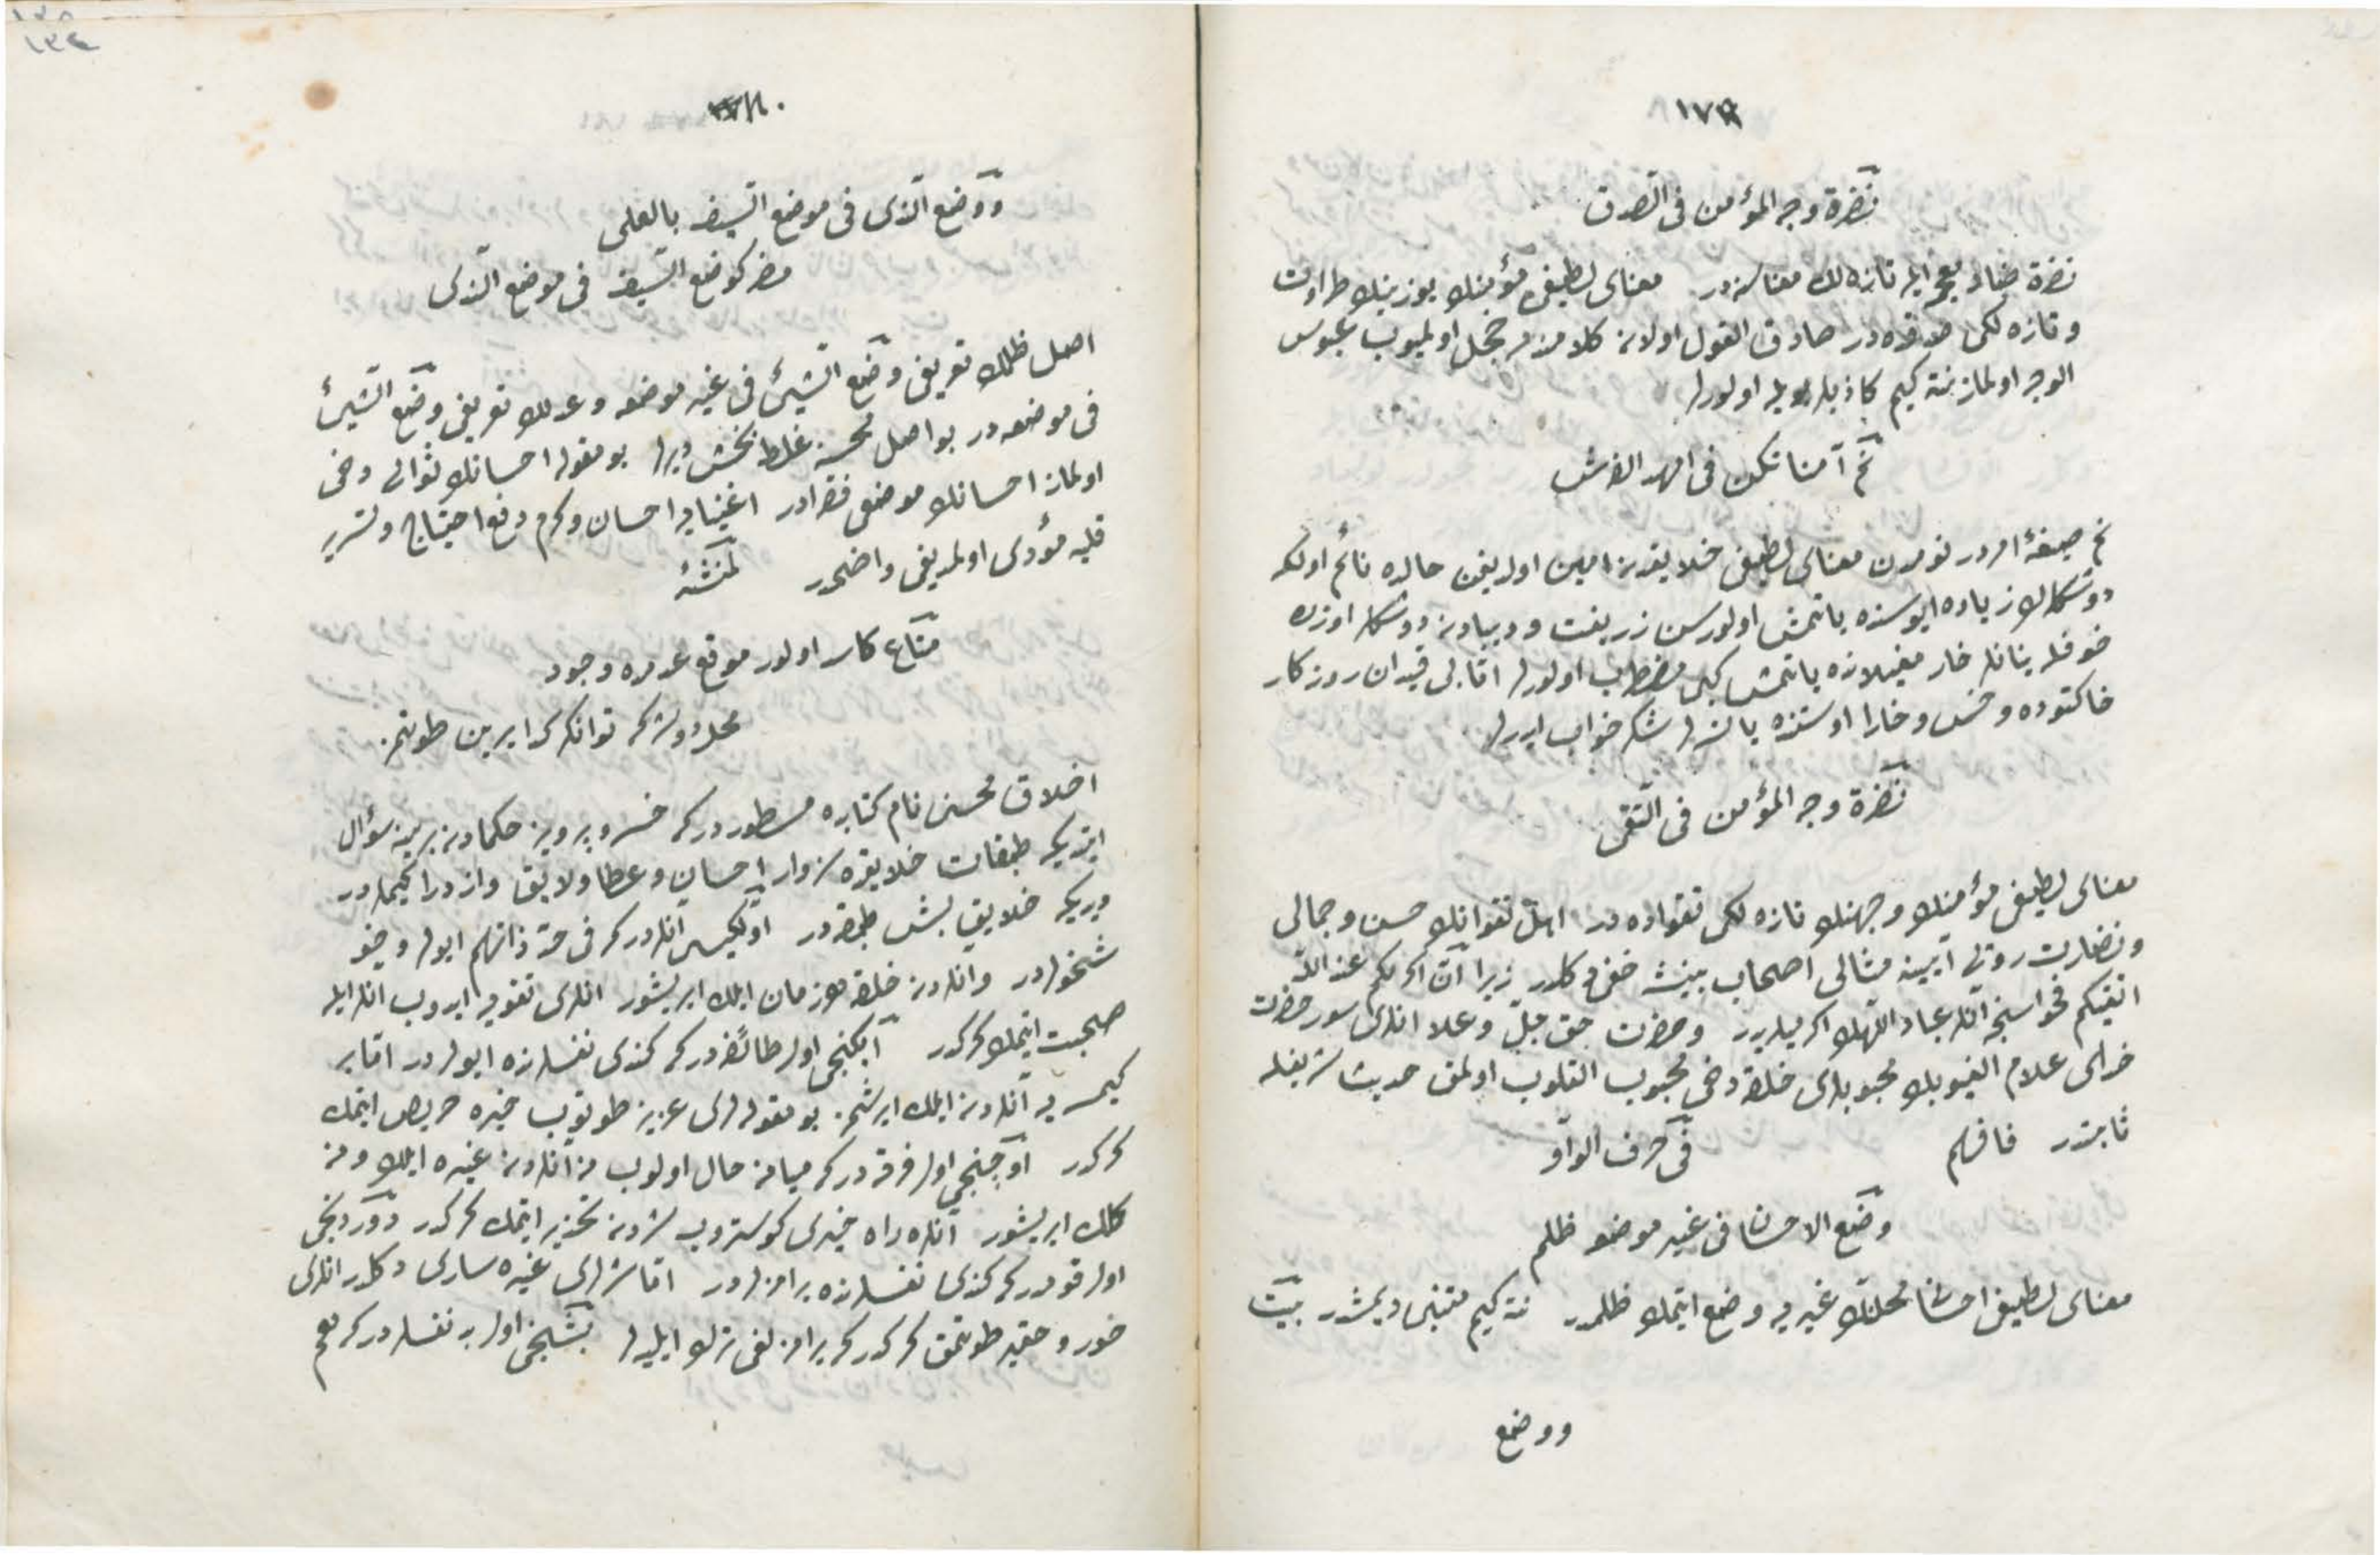 ١٧٩
نضرة وجه المؤمن فى الصدق
نضرة ضاد معجمه ايله تازه لك معناسنه در معناى لطيفى مؤمنك يوزينك طراوت
وتازه لكى صدقده در صادق القول اولان كلامندن خجل اولميوب عبوس
الوجه اولماز نته كيم كاذبلر بويله اولورلر
نم آمنا تكن فى امهد الفرش
نم صيغۀ امر در نومدن معناى لطيفى خلايقدن امين اولديغن حالده نائم اول كه
دوشكلرك زياده ايوسنده ياتمش اولورسن زربفت وديبادن دوشكلر اوزره
خوفله ينانلر خار مغيلانده ياتمش كبى مضطرب اولورلر اما بى قيدان روزكار
خاكتوده وخس وخارا اوستنده يالكز شكر خواب ايدرلر
نضرة وجه المؤمن فى التقى
معناى لطيفى مؤمنك وجهنك تازه لكى تقواده در اهل تقوانك حسن وجمالى
ونضارت روئى آيينه مثالى اصحاب بينشه خفى دكلدر زيرا ان اكرمكم عند الله
اتقيكم فحواسنجه انلر عباد اللهك اكرميدر وحضرت حق جل وعلا انلرى سور حضرت
خداى علام الغيوبك محبوبلرى خلقه دخى محبوب القلوب اولمق حديث شريفله
ثابتدر فافهم فى حرف الواو
وضع الاحسان فى غير موضعه ظلم
معناى لطيفى احسانى محلنك غيرى يه وضع ايتمك ظلمدر نته كيم متنبى ديمشدر بيت
ووضع
١٨٠
ووضع الندى فى موضع السيف بالعلى
مضر كوضع السيف فى موضع الندى
اصل ظلمك تعريفى وضع الشيئ فى غير موضعه وعدلك تعريفى وضع الشيئ
فى موضعه در بو اصل محسنه غلط بخش ديرلر بو مقوله احسانك ثوابى دخى
اولماز احسانك موضعى فقرادر اغنيايه احسان وكرم دفع احتياج وتسرير
قلبه مؤدى اولمديغى واضحدر لمنشئه
متاع كاسد اولور موقع عدمده وجود
محلدر ديرلر كه توانكر كدا يرين طوتمز
اخلاق محسنى نام كتابده مسطوردر كه خسرو پرويز حكمادن برينه سؤال
ايتديكه طبقات خلايقده سزاوار احسان وعطا ولايق واز درا كيملردر
ديديكه خلايق بش طبقه در اولكيسى انلردر كه فى حد ذاتهم ايولر وخير
شخصلردر وانلردن خلقه هر زمان ايلك ايريشور انلرى تقويه ايدوب انلر ايله
صحبت ايتمك كركدر ايكنجى اول طائفه در كه كندى نفسلرنده ايولردر اما بر
كيمسه يه انلردن ايلك ايرشمز بو مقوله لرى عزيز طوتوب خيره حريص ايتمك
كركدر اوچنجى اول فرقه در كه ميانه حال اولوب نه انلردن غيره ايلك ونه
كملك ايريشور انلره راه خيرى كوستروب شردن تحذير ايتمك كركدر دوردنجى
اول قومدر كه كندى نفسلرنده يرامزلردر اما شرلرى غيره سارى دكلدر انلرى
خور وحقير طوتمق كركدر كه يرامزلغى ترك ايليه لر بشنجى اول بد نفسلردر كه هم